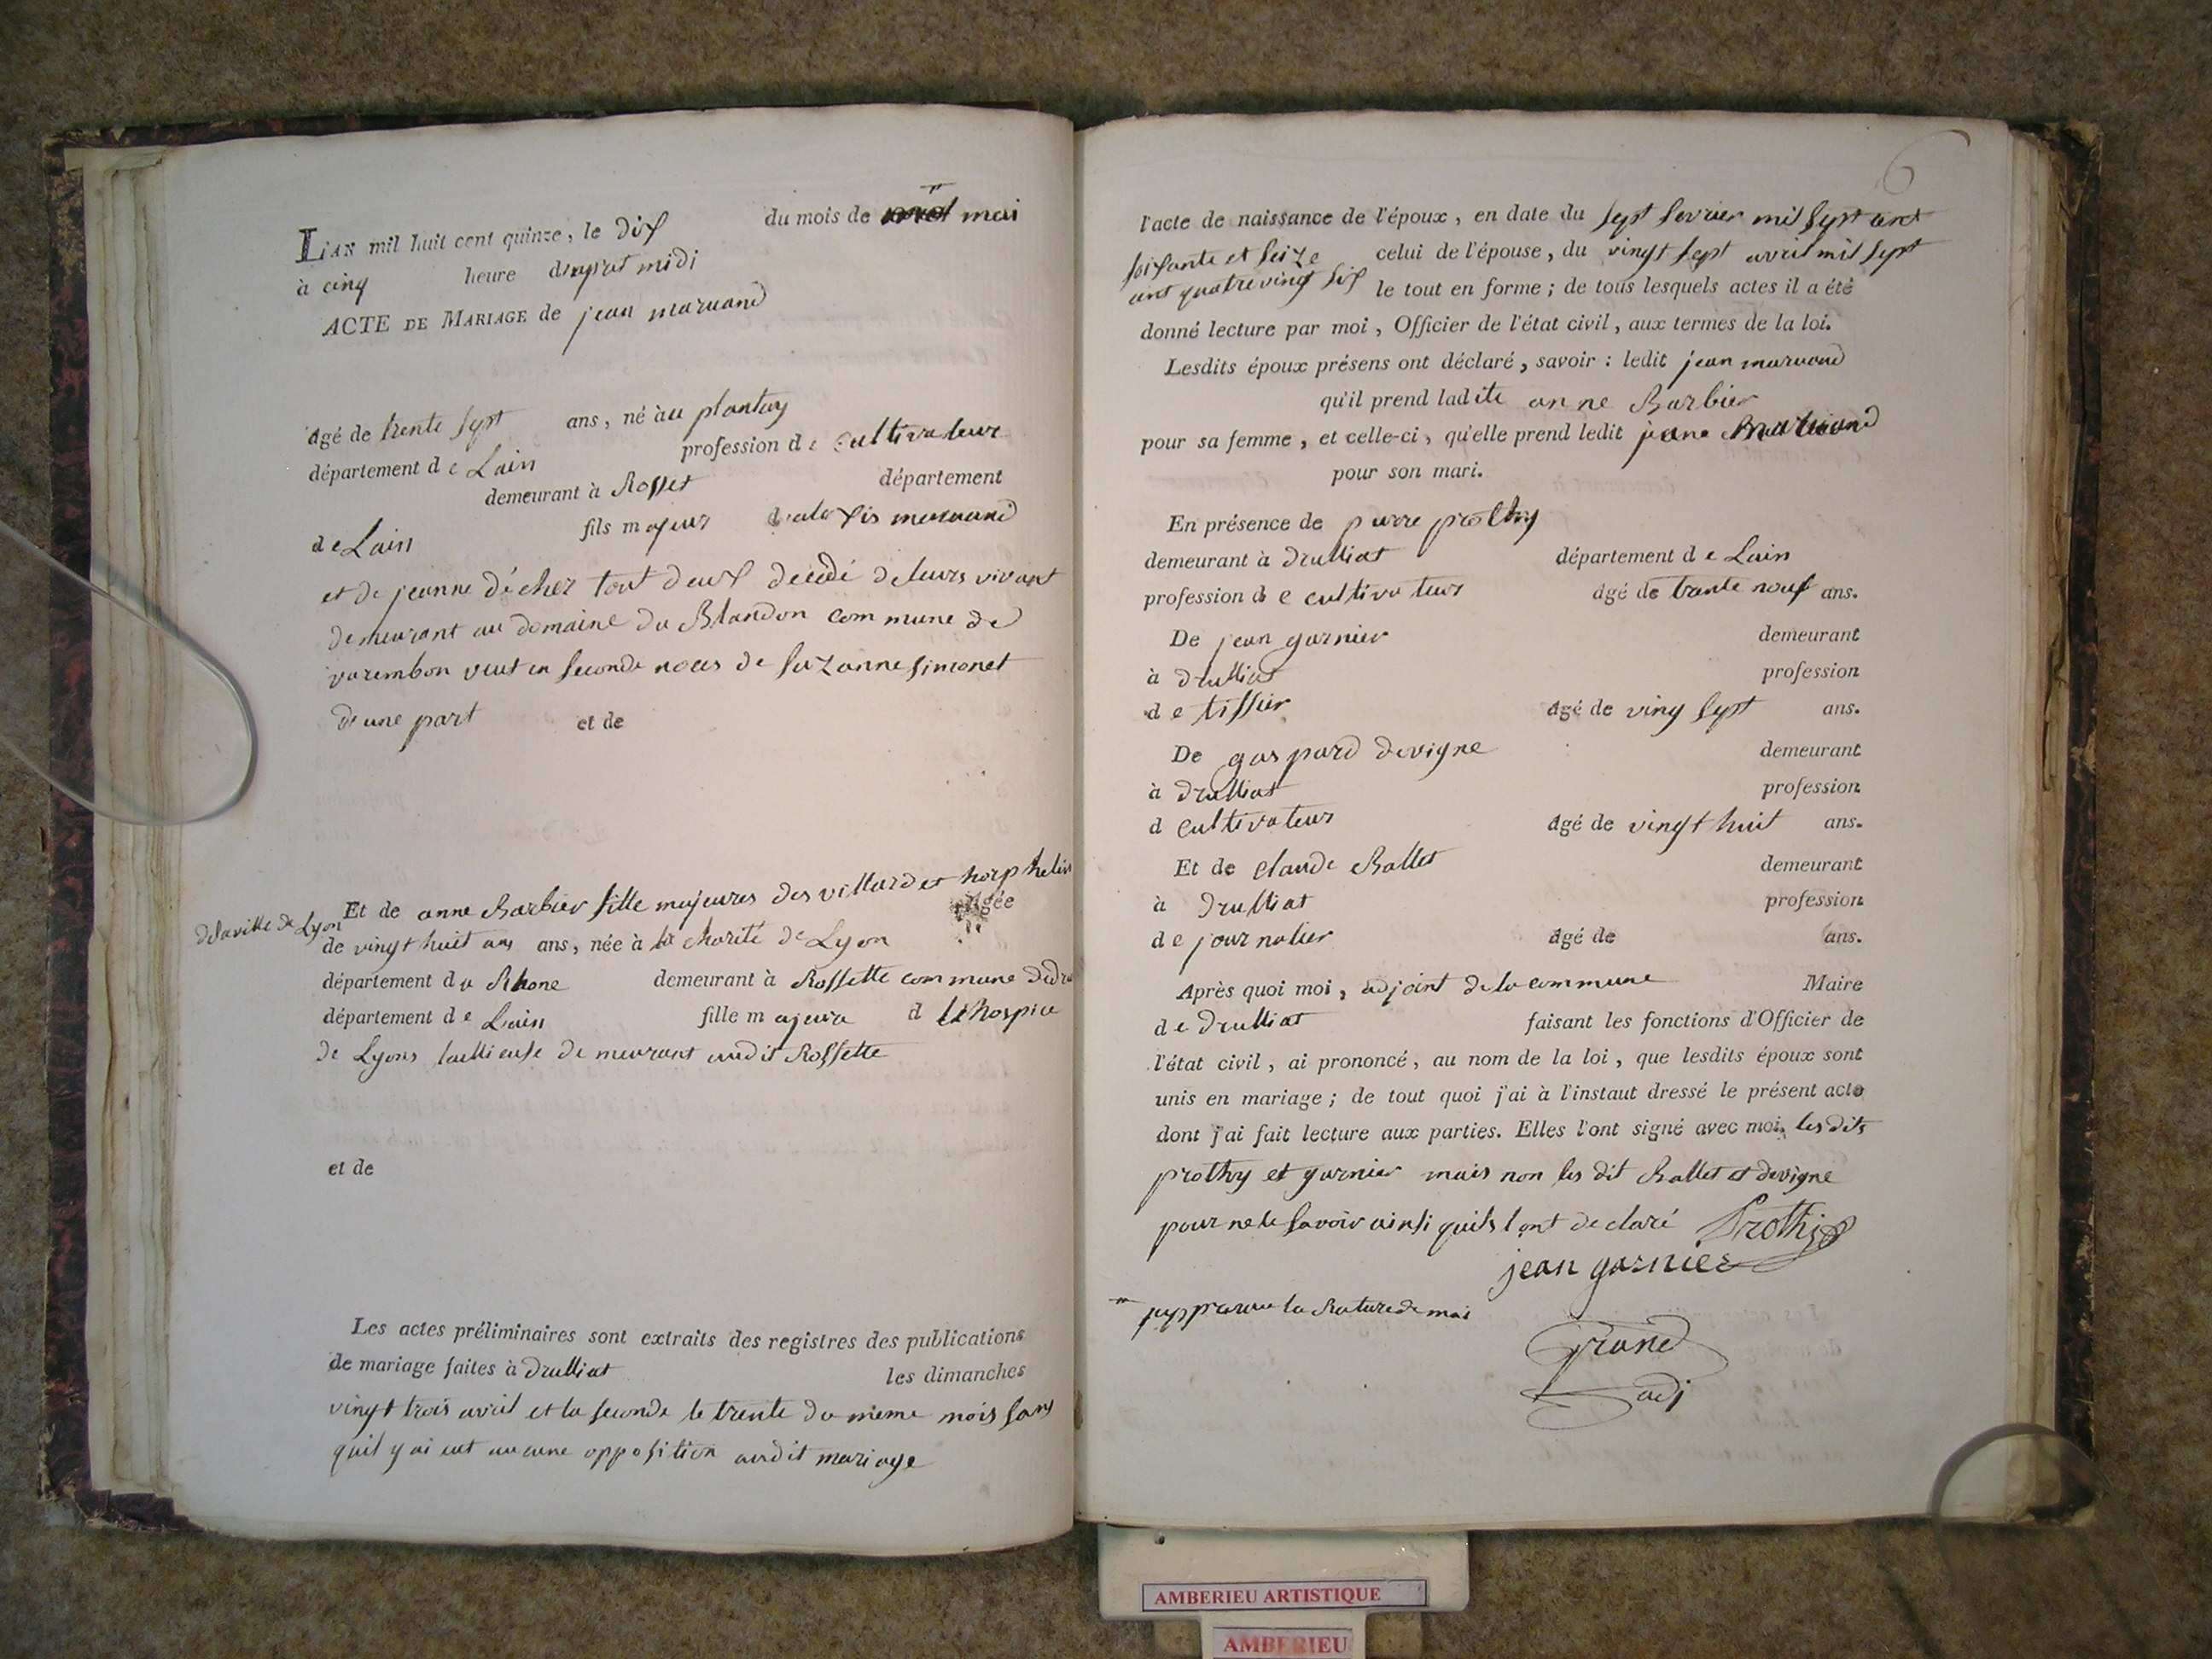 LIAN mil huit cent quinze, le dix du mois de mai
à cinq heure daprest midi
ACTE DE MARIAGE de jean maruand
âgé de trente sept ans, né àu plantay
département de Lain profession de cultivateur
demeurant à Rosset département
de Lain fils majeur dalexis maruand
et de jeanne décher tout deux décedé deleurs vivant
demeurant au domaine du Blandon commune de
varembon veut en seconde noces de suzanne simonet
de une part et de
Et de anne Barbier fille majeures des villard et horphelin
delaville de Lyon âgée
de vingt huit ans ans, née à la charité de Lyon
département du Rhone demeurant à Rossette commune dedru
département de Lain fille majeure d lhospice
de Lyons demeurant audit Rossette
et de
Les actes préliminaires sont extraits des registres des publications
de mariage faites à druilliat les dimanches
vingt trois avril et la seconde le trente du même mois sans
quil y ai eut aucune opposition audit mariage
6
l'acte de naissance de l'époux, en date du sept fevrier mil sept cent
soisante et seize celui de l'épouse, du vingt sept avril mil sept
cent quatreving six le tout en forme ; de tous lesquels actes il a été
donné lecture par moi, Officier de l'état civil, aux termes de la loi.
Lesdits époux présens ont déclaré, savoir : ledit jean maruand
qu'il prend ladite anne Barbier
pour sa femme, et celle-ci, qu'elle prend ledit jeane maruand
pour son mari.
En présence de pierre prothy
demeurant à druilliat département de Lain
profession de cultivateur âgé de trante nouf ans.
De jean garnier demeurant
à druilliat profession
de tissier âgé de ving sept ans.
De gaspard devigne demeurant
à druilliat profession
d cultivateur âgé de vingt huit ans.
Et de claude Ballet demeurant
à druilliat profession
de journalier âgé de ans.
Après quoi moi, adjoint dela commune Maire
de druilliat faisant les fonctions d'Officier de
l'état civil, ai prononcé, au nom de la loi, que lesdits époux sont
unis en mariage ; de tout quoi j'ai à l'instaut dressé le présent acte
dont j'ai fait lecture aux parties. Elles l'ont signé avec moi, les dits
prothy et garnier mais non les dit Ballet et devigne
pour ne le savoir ainsi quils lont declaré Prothy
jean garnier
japprouve la Rature de mai
grand
adj
AMBERIEU ARTISTIQUE
AMBERIEU